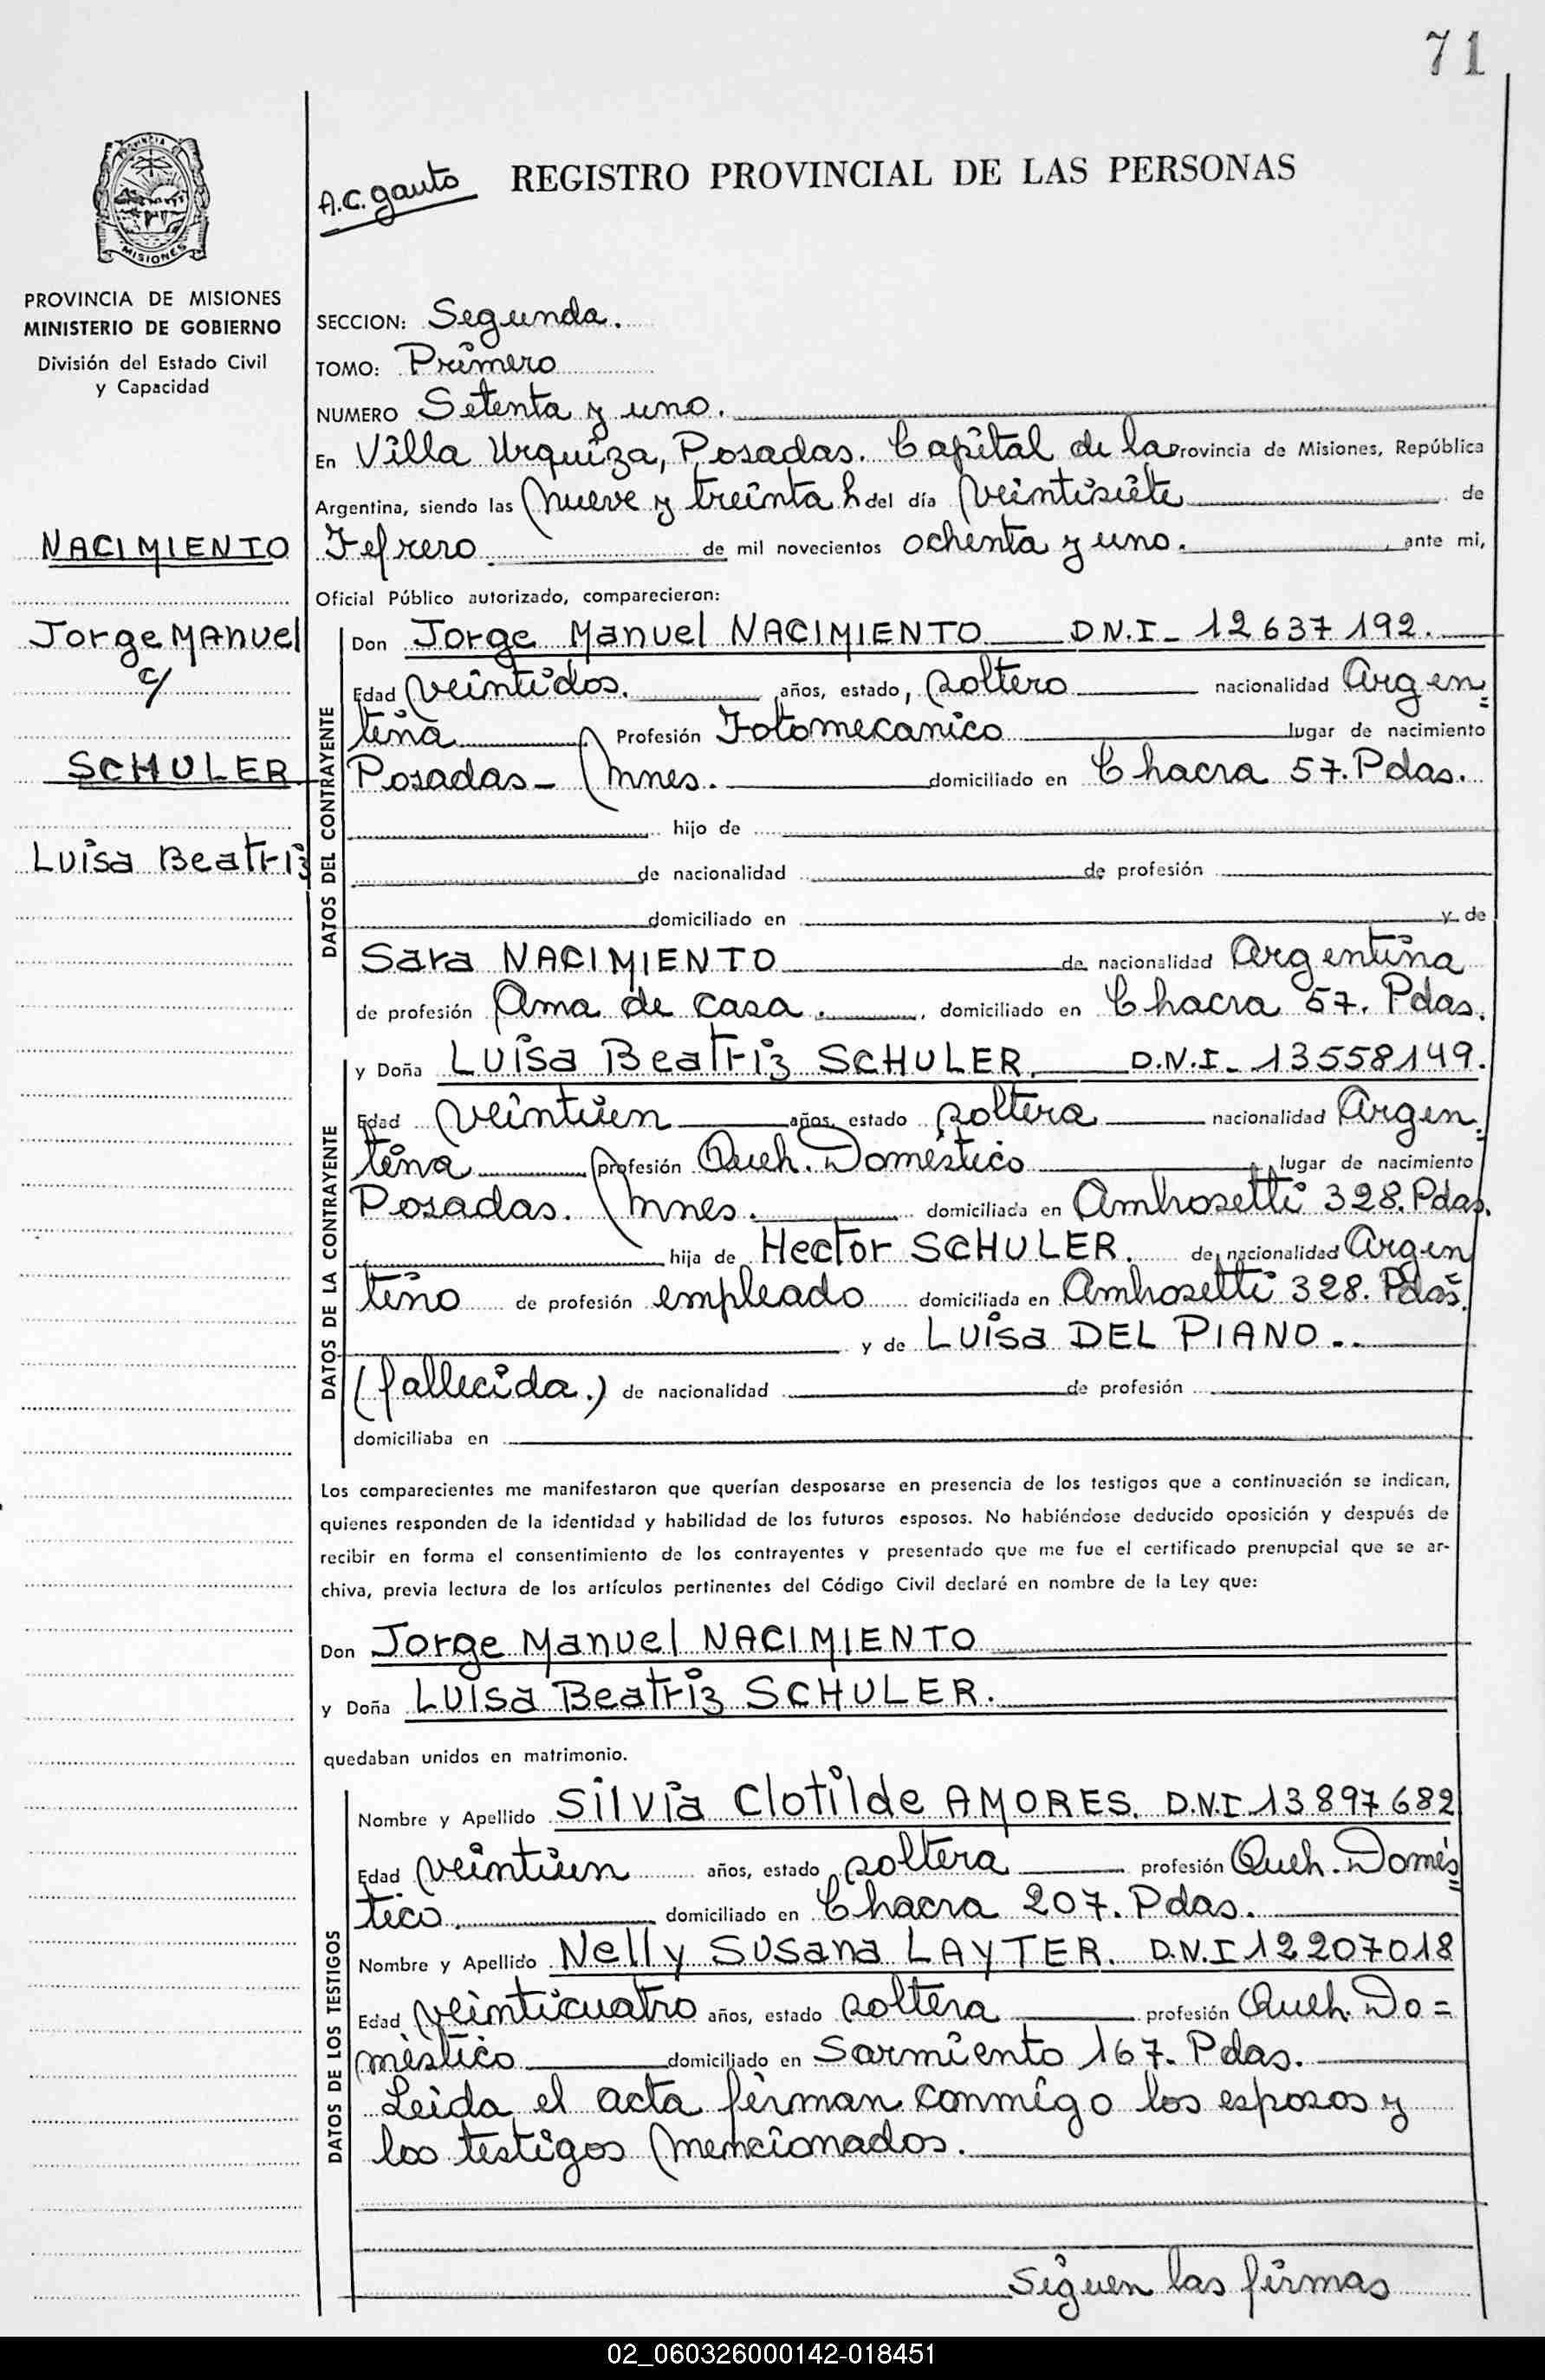 71
PROVINCIA
MISIONES
A.C. gauto
REGISTRO PROVINCIAL DE LAS PERSONAS
PROVINCIA DE MISIONES
MINISTERIO DE GOBIERNO
División del Estado Civil
y Capacidad
NACIMIENTO
Jorge Manuel
c/
SCHULER
Luisa Beatriz
SECCION: Segunda.
TOMO: Primero
NUMERO Setenta y uno.
En Villa Urquiza, Posadas. Capital de la Provincia de Misiones, República
Argentina, siendo las nueve y treinta h del día veintisiete de
Febrero de mil novecientos ochenta y uno. , ante mi,
Oficial Público autorizado, comparecieron:
DATOS DEL CONTRAYENTE
Don Jorge Manuel NACIMIENTO D.N.I- 12637192.
Edad veintidos. años, estado, soltero nacionalidad Argen=
tina Profesión Fotomecanico lugar de nacimiento
Posadas- Mnes. domiciliado en Chacra 57. Pdas.
hijo de
de nacionalidad de profesión
domiciliado en y de
Sara NACIMIENTO de nacionalidad Argentina
de profesión Ama de casa. , domiciliado en Chacra 57. Pdas.
DATOS DE LA CONTRAYENTE
y Doña Luisa Beatriz SCHULER. D.N.I- 13558149.
Edad veintiun años, estado soltera nacionalidad Argen=
tina profesión Queh. Doméstico lugar de nacimiento
Posadas. Mnes. domiciliada en Ambrosetti 328. Pdas.
hija de Hector SCHULER. de nacionalidad Argen
tino de profesión empleado domiciliada en Ambosetti 328. Pdas.
y de Luisa DEL PIANO..
(fallecida.) de nacionalidad de profesión
domiciliaba en
Los comparecientes me manifestaron que querían desposarse en presencia de los testigos que a continuación se indican,
quienes responden de la identidad y habilidad de los futuros esposos. No habiéndose deducido oposición y después de
recibir en forma el consentimiento de los contrayentes y presentado que me fue el certificado prenupcial que se ar-
chiva, previa lectura de los artículos pertinentes del Código Civil declaré en nombre de la Ley que:
Don Jorge Manuel NACIMIENTO
y Doña Luisa Beatriz SCHULER.
quedaban unidos en matrimonio.
DATOS DE LOS TESTIGOS
Nombre y Apellido Silvia Clotilde AMORES. D.N.I 13897682
Edad veintiun años, estado soltera profesión Queh. Domés=
tico. domiciliado en Chacra 207. Pdas.
Nombre y Apellido Nelly Susana LAYTER. D.N.I 12207018
Edad veinticuatro años, estado soltera profesión Queh. Do=
méstico domiciliado en Sarmiento 167. Pdas.
Leida el acta firman conmigo los esposos y
los testigos mencionados.
Siguen las firmas
02_060326000142-018451